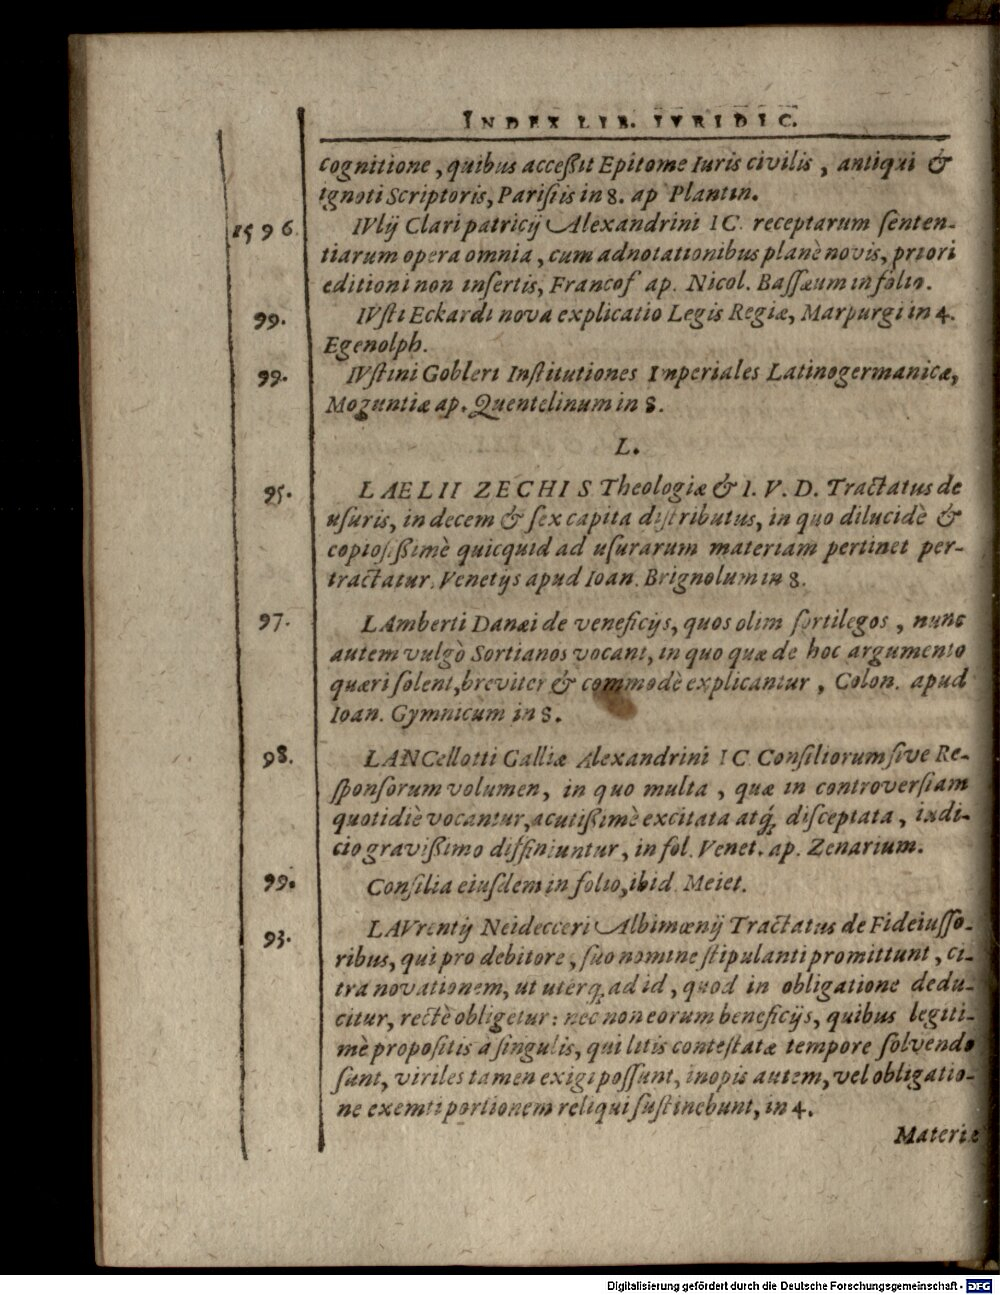 INDEX LIB. IVRIDIC.
cognitione, quibus acceßit Epitome Iuris civilis, antiqui &
ignoti Scriptoris, Parisiis in 8. ap Plantin.
1596. IVlij Clari patricij Alexandrini IC. receptarum senten-
tiarum opera omnia, cum adnotationibus planè novis, priori
editioni non insertis, Francof ap. Nicol. Bassæum in folio.
99. IVsti Eckardi nova explicatio Legis Regiæ, Marpurgi in 4.
Egenolph.
99. IVstini Gobleri Institutiones Imperiales Latinogermanicæ,
Moguntiæ ap. Quentelinum in 8.
L.
95. LAELII ZECHIS Theologiæ & I. V. D. Tractatus de
usuris, in decem & sex capita distributus, in quo dilucidè &
copiosißimè quicquid ad usurarum materiam pertinet per-
tractatur. Venetijs apud Ioan. Brignolum in 8.
97. LAmberti Danæi de veneficijs, quos olim sortilegos, nunc
autem vulgò Sortianos vocant, in quo quæ de hoc argumento
quæri solent, breviter & commodè explicantur, Colon. apud
Ioan. Gymnicum in 8.
98. LANCellotti Galliæ Alexandrini IC Consiliorum sive Re-
sponsorum volumen, in quo multa, quæ in controversiam
quotidiè vocantur, acutißimè excitata atq́; disceptata, iudi-
cio gravißimo diffiniuntur, in fol. Venet. ap. Zenarium.
99. Consilia eiusdem in folio, ibid. Meiet.
93. LAVrentij Neidecceri Albimœnij Tractatus de Fideiusso-
ribus, qui pro debitore, suo nomine stipulanti promittunt, ci-
tra novationem, ut uterq; ad id, quod in obligatione dedu-
citur, rectè obligetur: nec non eorum beneficijs, quibus legiti-
mè propositis a singulis, qui litis contestatæ tempore solvendo
sunt, viriles tamen exigi possunt, inopis autem, vel obligatio-
ne exemti portionem reliqui sustinebunt, in 4.
Materiæ
Digitalisierung gefördert durch die Deutsche Forschungsgemeinschaft - DFG